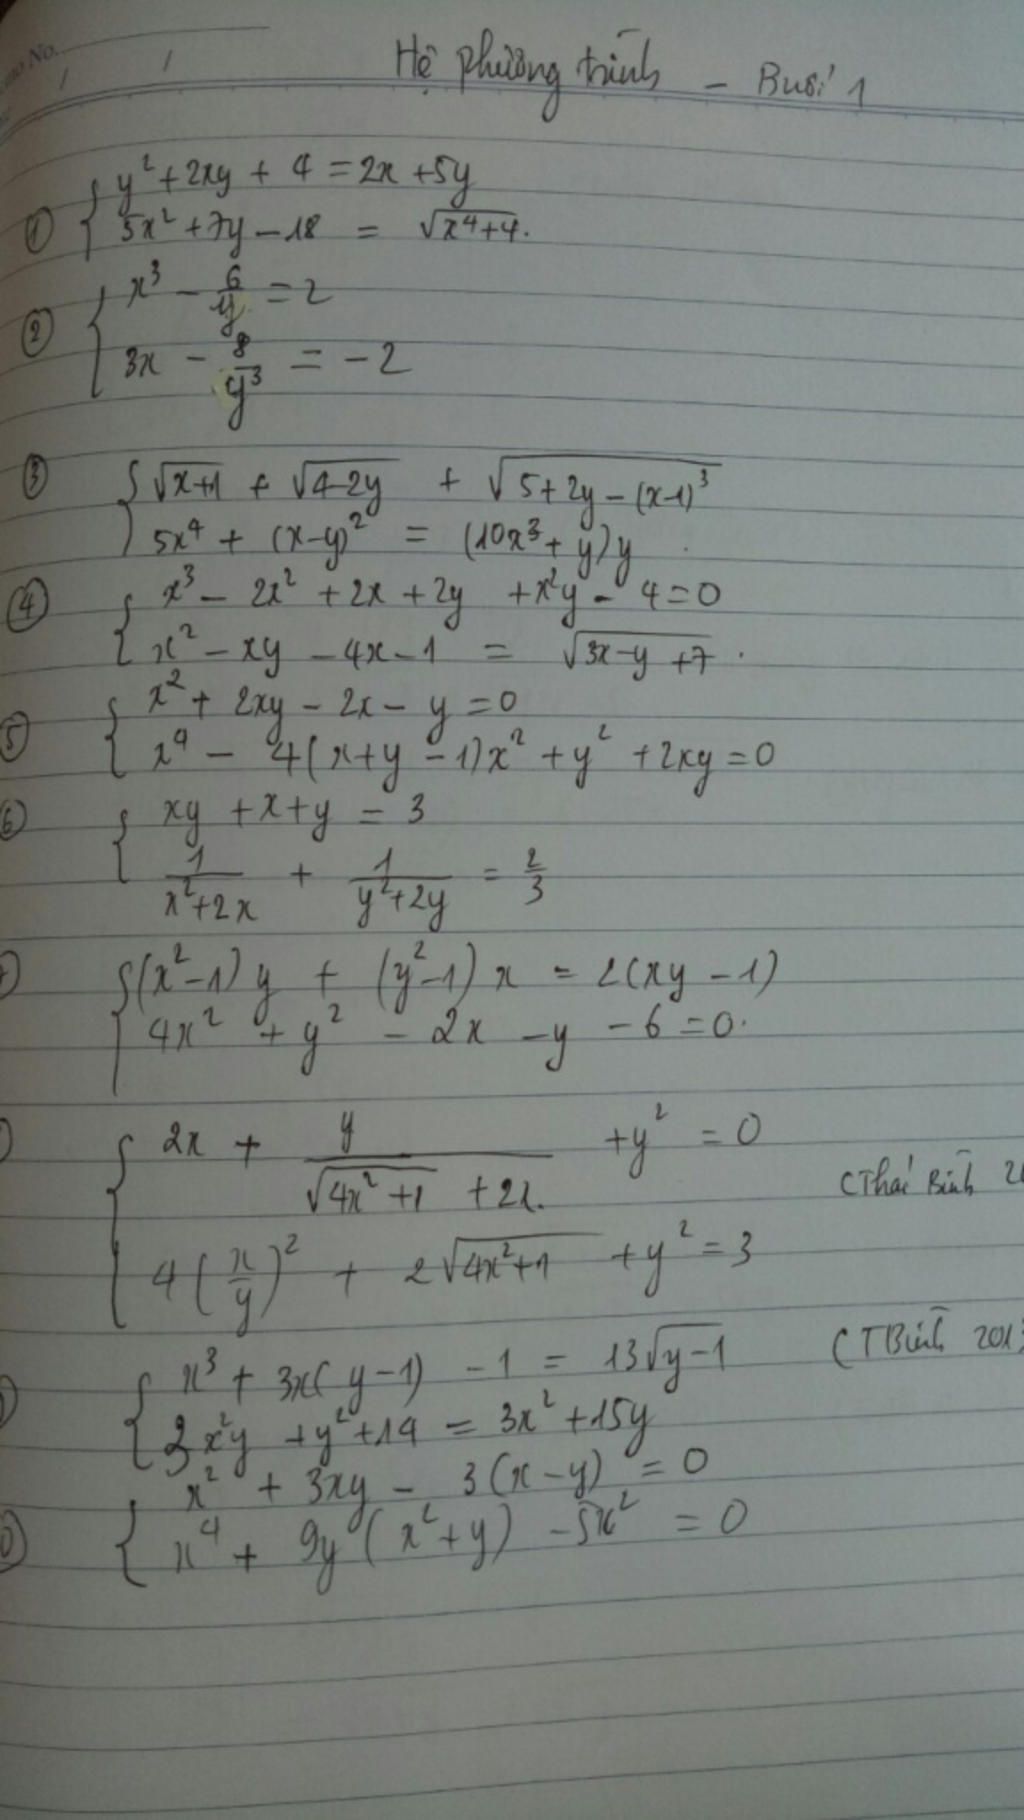 Hệ phương trình - Buổi 1
① { y² + 2xy + 4 = 2x + 5y
5x² + 7y - 18 = √(x⁴+4).
② { x³ - 6/y = 2
3x - 8/y³ = -2
③ { √(x+1) + √(4-2y) + √(5+2y-(x-1)³)
5x⁴ + (x-y)² = (10x³ + y)y
④ { x³ - 2x² + 2x + 2y + x²y - 4 = 0
x² - xy - 4x - 1 = √(3x-y+7).
⑤ { x² + 2xy - 2x - y = 0
x⁴ - 4(x+y-1)x² + y² + 2xy = 0
⑥ { xy + x + y = 3
1/(x²+2x) + 1/(y²+2y) = 2/3
{ (x²-1)y + (y²-1)x = 2(xy-1)
4x² + y² - 2x - y - 6 = 0.
{ 2x + y/(√(4x²+1) + 2x.) + y² = 0
(Thái Bình
4(x/y)² + 2√(4x²+1) + y² = 3
{ x³ + 3x(y-1) - 1 = 13√(y-1) (TBình 2013
3x²y + y² + 14 = 3x² + 15y
{ x² + 3xy - 3(x-y) = 0
x⁴ + 9y(x²+y) - 5x² = 0